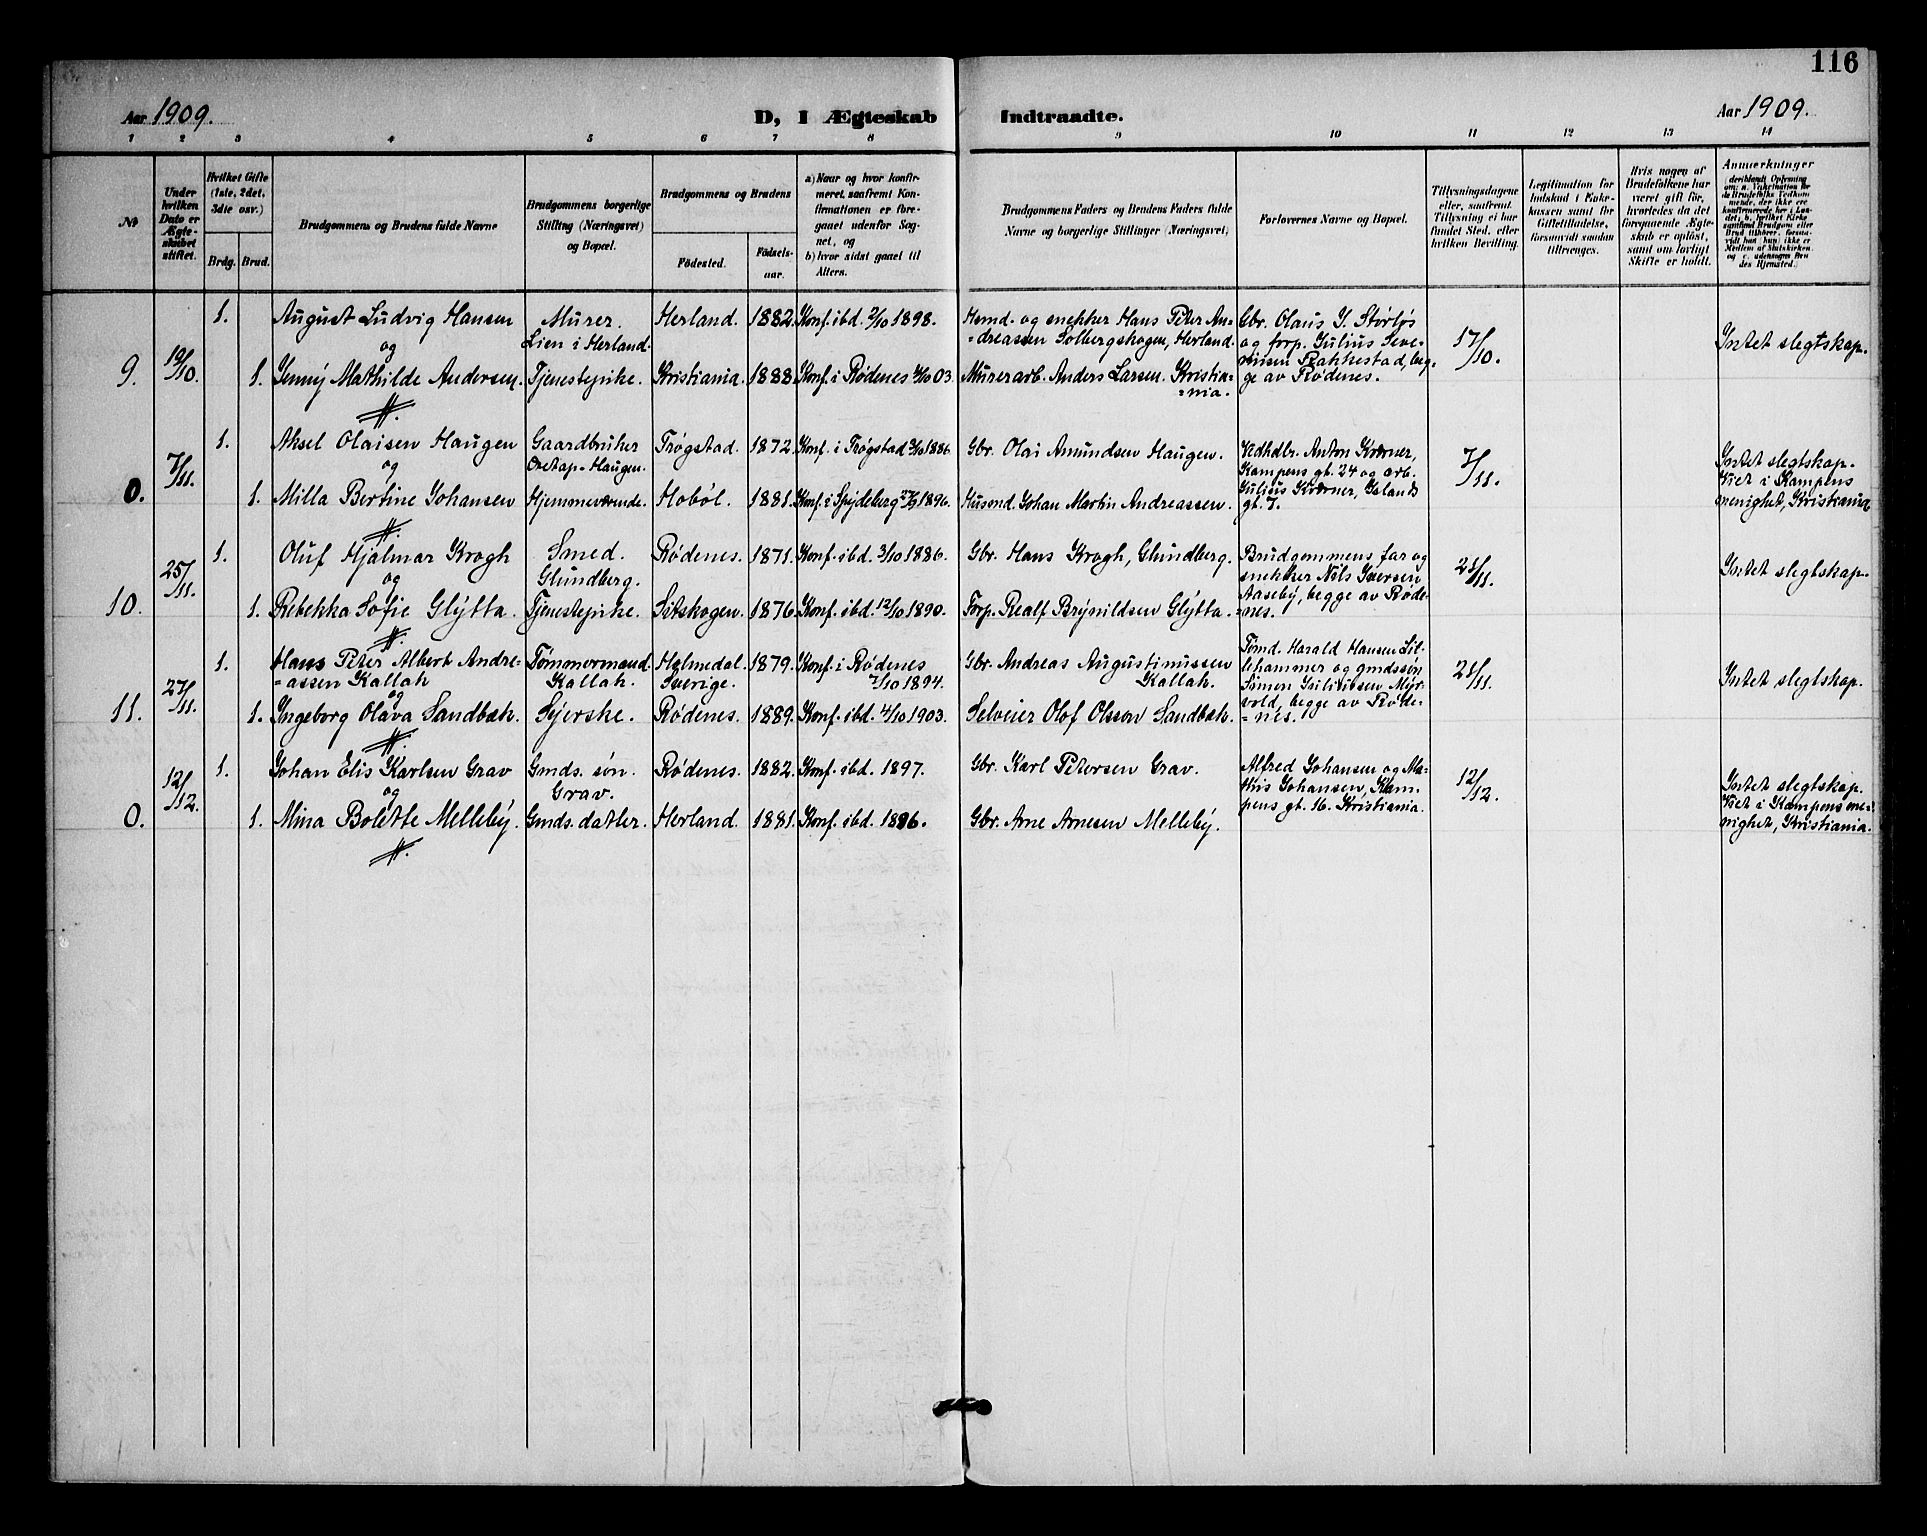 116
Aar 1909.
D, I Ægteskab Indtraadte.
Aar 1909.
1 2 3 4 5 6 7 8 9 10 11 12 13 14
№
Under hvilken Dato er Ægteskabet stiftet.
Hvilket Gifte (1ste, 2det, 3die osv.)
Brdg. Brud.
Brudgommens og Brudens fulde Navne
Brudgommens borgerlige Stilling (Næringsvei) og Bopæl.
Brudgommens og Brudens
Fødested.
Fødselsaar.
a) Naar og hvor konfirmeret, saafremt Konfirmationen er foregaaet udenfor Sognet, og
b) hvor sidst gaaet til Alters.
Brudgommens Faders og Brudens Faders fulde Navne og borgerlige Stillinger (Næringsvei)
Forlovernes Navne og Bopæl.
Tillysningsdagene eller, saafremt Tillysning ei har fundet Sted, efter hvilken Bevilling.
Legitimation for Indskud i Enkekassen samt for Giftetilladelse, forsaavidt saadan tiltrænges.
Hvis nogen af Brudefolkene har været gift før, hvorledes da det foregaaende Ægteskab er opløst, samt om lovligt Skifte er holdt.
Anmærkninger
9. 19/10. 1. August Ludvig Hansen Murer. Lien i Herland. Herland. 1882. Konf. ibd. 2/10 1898. Hsmd. og snekker Hans Peter Andreassen Solbergskogen, Herland. Gbr. Olaus J. Størlys og forp. Julius Severinsen Rakkestad, begge av Rødenes. 17/10. Intet slegtskap.
og
1. Jenny Mathilde Andersen. Tjenestepike. Kristiania. 1888. Konf. i Rødenes 4/10 03. Murerarb. Anders Larsen. Kristiania.
0. 7/11. 1. Aksel Olaisen Haugen Gaardbruker Haugen. Trøgstad. 1872. Konf. i Trøgstad 3/10 1886. Gbr. Olai Amundsen Haugen. Vedhdlr. Anton Kværner, Kampens gt. 24 og arb. Julius Kværner, Islands gt. 7. 7/11. Intet slegtskap. Viet i Kampens menighet, Kristiania
og
1. Milla Bertine Johansen Hjemmeværende. Hobøl. 1881. Konf. i Spydeberg 27/9 1896. Husmd. Johan Martin Andreassen.
10. 25/11. 1. Oluf Hjalmar Krogh Smed. Glundberg. Rødenes. 1871. Konf. ibd. 3/10 1886. Gbr. Hans Krogh, Glundberg. Brudgommens far og snekker Nils Iversen Aaseby, begge av Rødenes. 21/11. Intet slegtskap.
og
1. Rebekka Sofie Glytta. Tjenestepike. Setskogen. 1876. Konf. ibd. 12/10 1890. Forp. Realf Brynildsen Glytta.
11. 27/11. 1. Hans Peter Albert Andreassen Kallak Tømmermand. Kallak. Holmedal. Sverige. 1879. Konf. i Rødenes 7/10 1894. Gbr. Andreas Augustinussen Kallak. Tømd. Harald Hansen Lillehammer og gmdssøn Simen Julinsen Myrvold, begge av Rødenes. 21/11. Intet slegtskap.
og
1. Ingeborg Olava Sandbæk. Syerske. Rødenes. 1889. Konf. ibd. 4/10 1903. Selveier Olof Olsson Sandbæk.
0. 12/12. 1. Johan Elis Karlsen Grav Gmds. søn. Grav. Rødenes. 1882. Konf. ibd. 1897. Gbr. Karl Petersen Grav. Alfred Johansen og Mathis Johansen, Kampens gt. 16. Kristiania. 12/12. Intet slegtskap. Viet i Kampens menighet, Kristiania.
og
1. Mina Bolette Melleby. Gmds. datter. Herland. 1881. Konf. ibd. 1896. Gbr. Arne Arnesen Melleby.